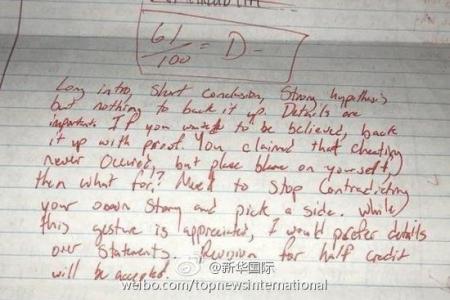 61/100 = D-
Long intro, Short conclusion, Strong hypothesis
but nothing to back it up. Details are
important. If you wanted to be believed, back
it up with proof. You claimed that cheating
never occured, but place blame on yourself,
then what for? Need to stop contradicting
your own story and pick a side. While
this gesture is appreciated, I would prefer details
over statements. Revision for half credit
will be accepted.
@新华国际
weibo.com/topnewsinternational